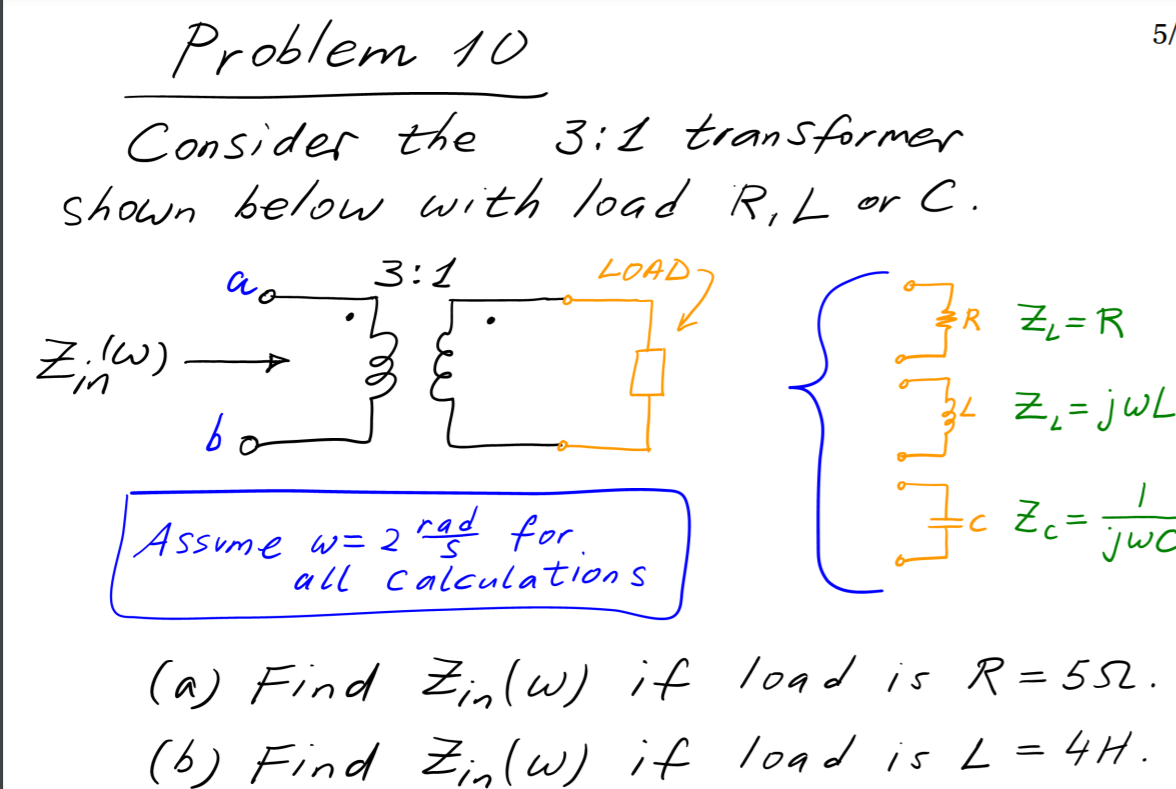 Problem 10
5/
Consider the 3:1 transformer
shown below with load R, L or C.
a 3:1 LOAD
Z_in(ω)
b
R Z_L = R
L Z_L = jωL
C Z_C = 1/jωC
Assume ω = 2 rad/s for
all calculations
(a) Find Z_in(ω) if load is R = 5Ω.
(b) Find Z_in(ω) if load is L = 4H.